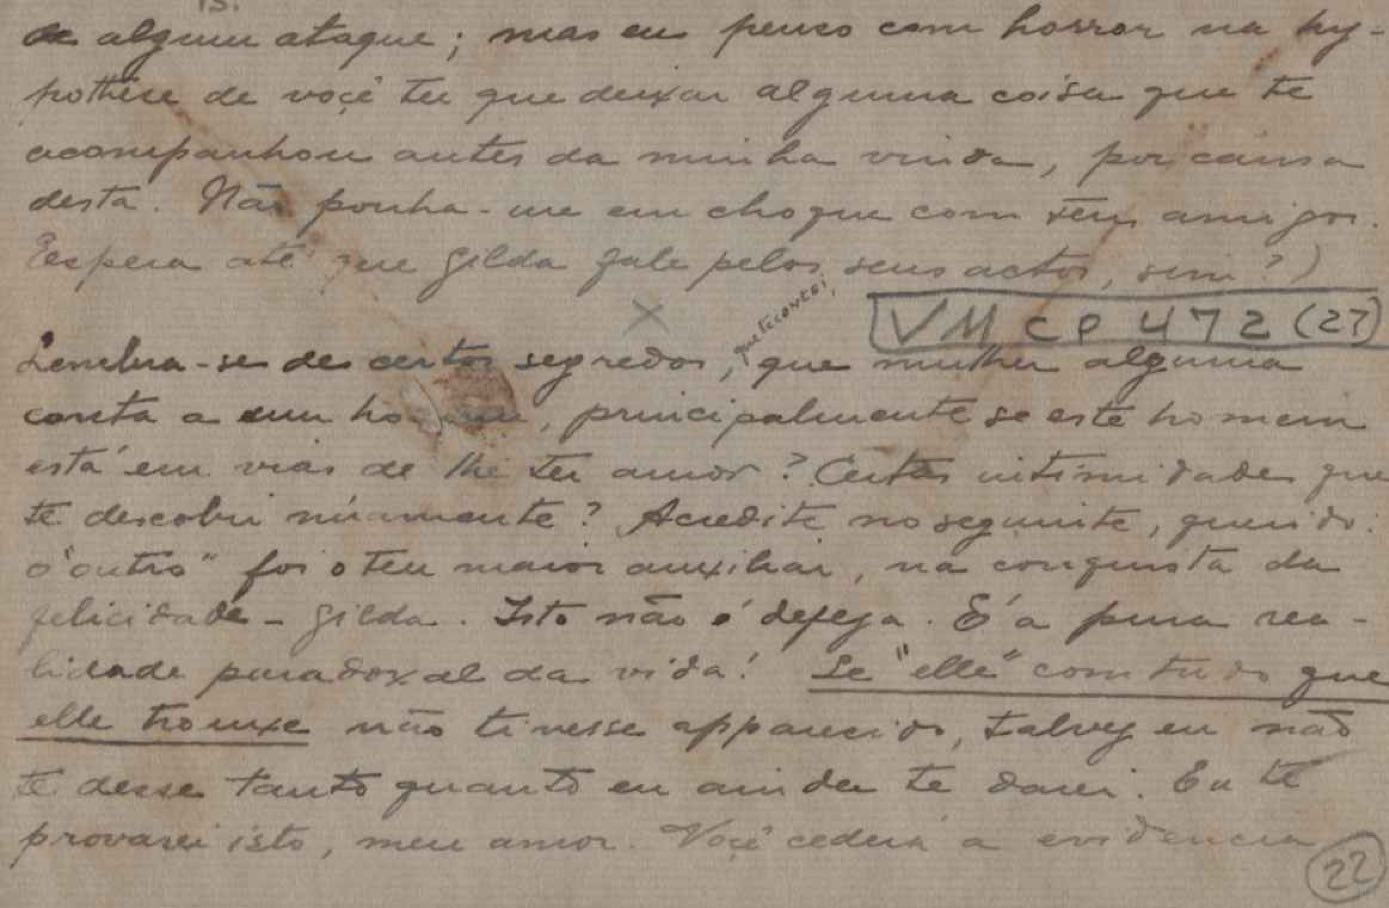 15.
de algum ataque; mas eu penso com horror na hy-
pothese de voçê ter que deixar alguma coisa que te
acompanhou antes da minha vinda, por causa
desta. Não ponha-me em choque com seus amigos.
Espera até que Gilda fale pelos seus actos, sim?)
X
VM CP 472 (27)
que te contei,
Lembra-se de certos segredos, que mulher alguma
conta a um homem, principalmente se este homem
está em vias de lhe ter amor? Certas intimidades que
te descobri núamente? Acredite no seguinte, querido:
o "outro" foi o teu maior auxiliar, na conquista da
felicidade - Gilda. Isto não é defeza. É a pura rea-
lidade paradoxal da vida! Se "elle" com tudo que
elle trouxe não tivesse apparecido, talvez eu não
te desse tanto quanto eu ainda te darei. Eu te
provarei isto, meu amor. Voçê cederá a evidencia
22